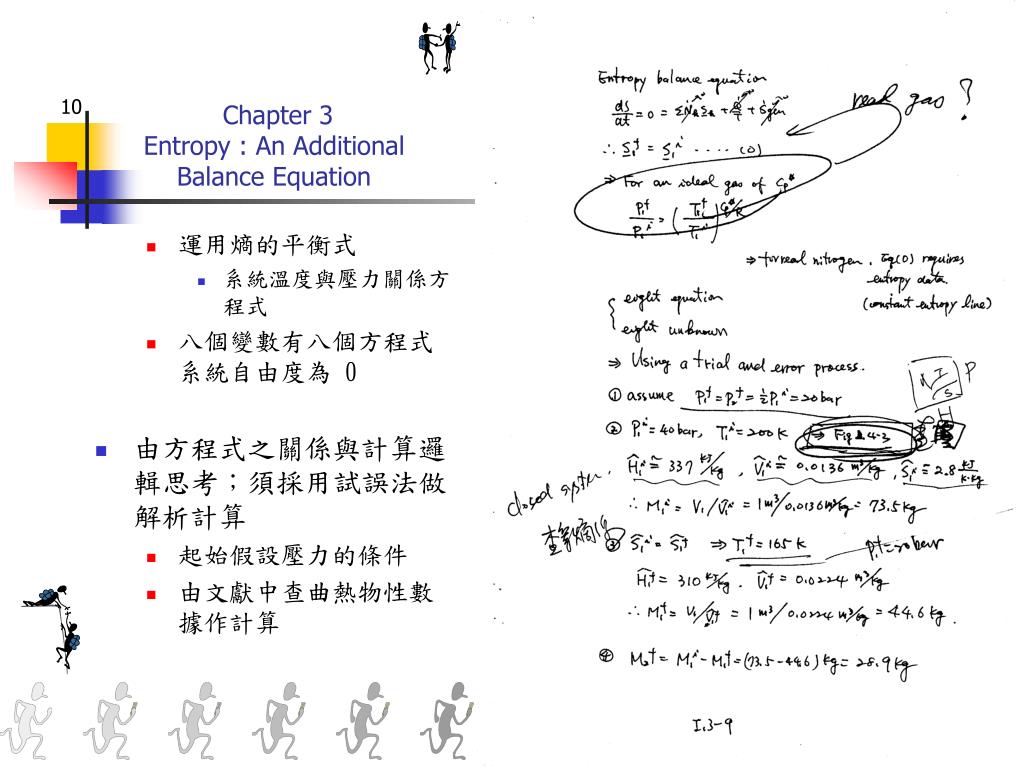 10
Chapter 3
Entropy : An Additional
Balance Equation
運用熵的平衡式
系統溫度與壓力關係方
程式
八個變數有八個方程式
系統自由度為 0
由方程式之關係與計算邏
輯思考；須採用試誤法做
解析計算
起始假設壓力的條件
由文獻中查曲熱物性數
據作計算
Entropy balance equation
real gas ?
∴ S₁ᶠ = S₁ⁱ ‥‥ (0)
⇒ For an ideal gas of Cp*
P₁ᶠ/P₁ⁱ = (T₁ᶠ/T₁ⁱ)^(Cp*/R)
⇒ for real nitrogen, Eq(0) requires
entropy data.
(constant entropy line)
eight equation
eight unknown
⇒ Using a trial and error process.
① assume P₁ᶠ = P₂ᶠ = ½P₁ⁱ = 20 bar
② P₁ⁱ = 40 bar, T₁ⁱ = 200 K ⇒ Fig 2.4-3
Ĥ₁ⁱ ≅ 337 kJ/kg, V̂₁ⁱ ≅ 0.0136 m³/kg, Ŝ₁ⁱ ≅ 2.8 kJ/K·kg
closed system
∴ M₁ⁱ = V₁/V̂₁ⁱ = 1 m³/0.0136 m³/kg = 73.5 kg
③ Ŝ₁ⁱ = Ŝ₁ᶠ ⇒ T₁ᶠ = 165 K P₁ᶠ = 20 bar
Ĥ₁ᶠ = 310 kJ/kg, V̂₁ᶠ = 0.0224 m³/kg
∴ M₁ᶠ = V₁/V̂₁ᶠ = 1 m³/0.0224 m³/kg = 44.6 kg.
④ M₂ᶠ = M₁ⁱ - M₁ᶠ = (73.5 - 44.6) kg = 28.9 kg
I.3-9